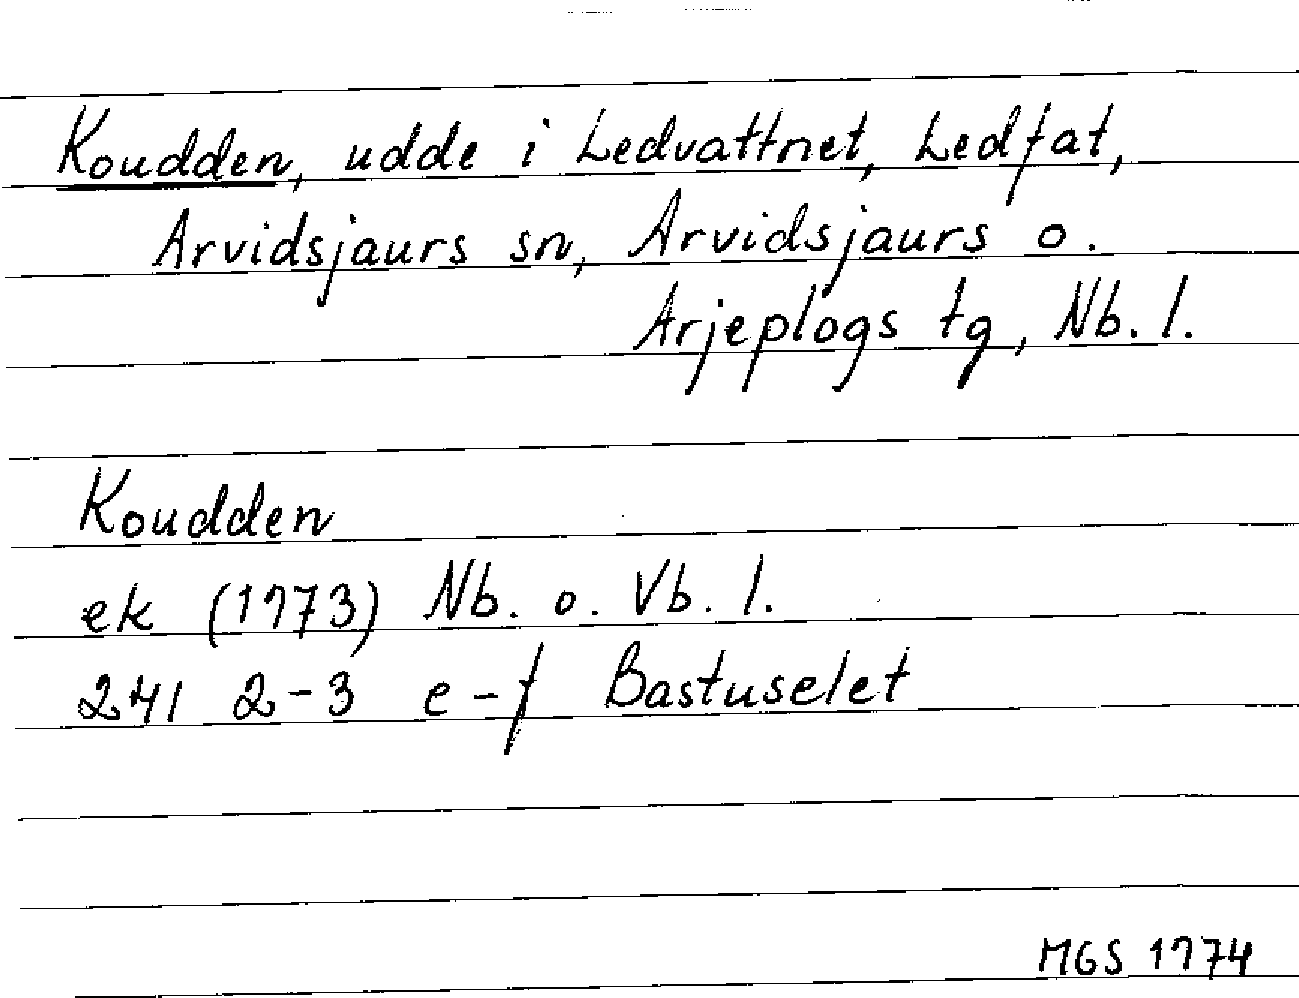 Koudden, udde i Ledvattnet, Ledfat,
Arvidsjaurs sn, Arvidsjaurs o.
Arjeplogs tg, Nb. l.
Koudden
ek (1973) Nb. o. Vb. l.
241 2-3 e-f Bastuselet
MGS 1974